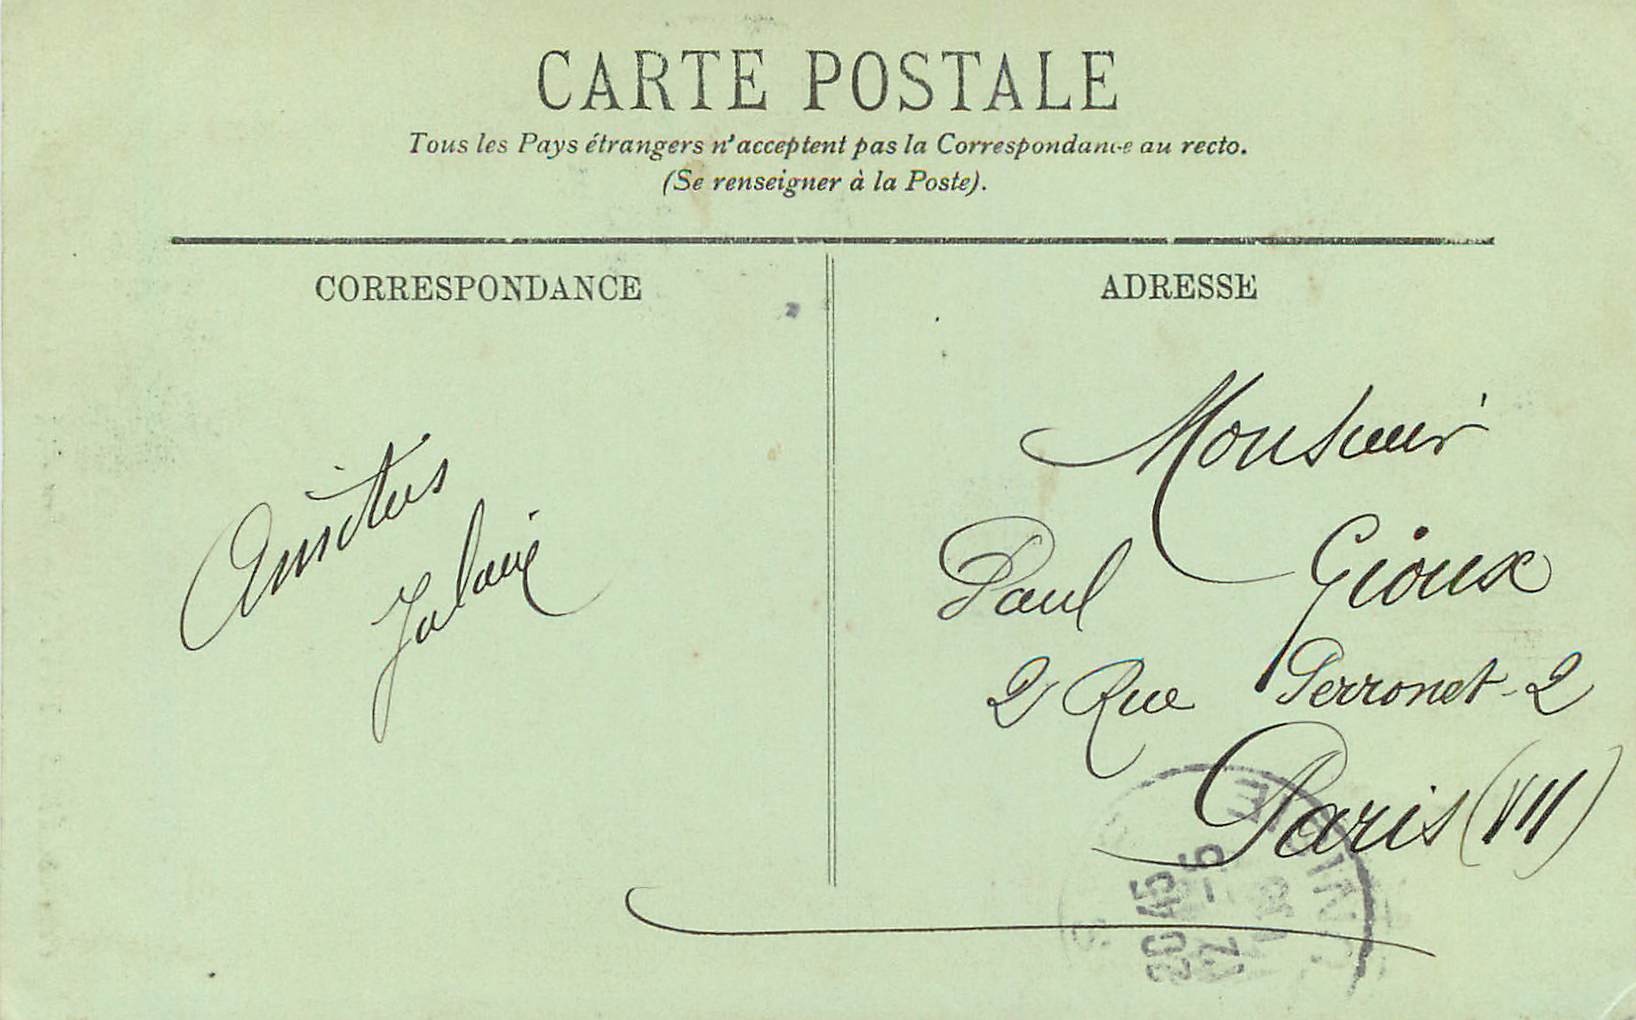 CARTE POSTALE
Tous les Pays étrangers n'acceptent pas la Correspondance au recto.
(Se renseigner à la Poste).
CORRESPONDANCE
Amitiés
ADRESSE
Monsieur
Paul Gioux
2 Rue Perronet-2
Paris (VII)
20 45
12 - 5